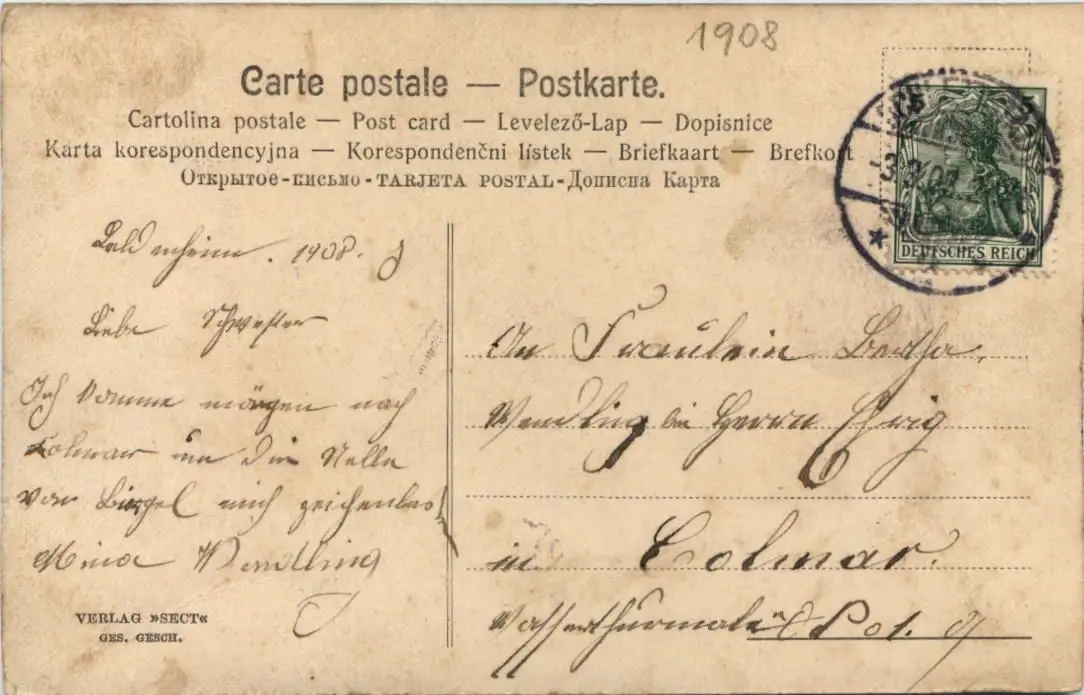 1908
Carte postale — Postkarte.
Cartolina postale — Post card — Levelező-Lap — Dopisnice
Karta korespondencyjna — Korespondenčni lístek — Briefkaart — Brefkort
Открытое-письмо - TARJETA POSTAL - Дописна Карта
5 5
DEUTSCHES REICH
Baldenheim. 1908.
Liebe Schwester
Ich komme morgen nach
Colmar um die Stelle
von
Mina Wendling
An Fräulein Bertha
Wendling bei Herrn
in Colmar.
VERLAG »SECT«
GES. GESCH.